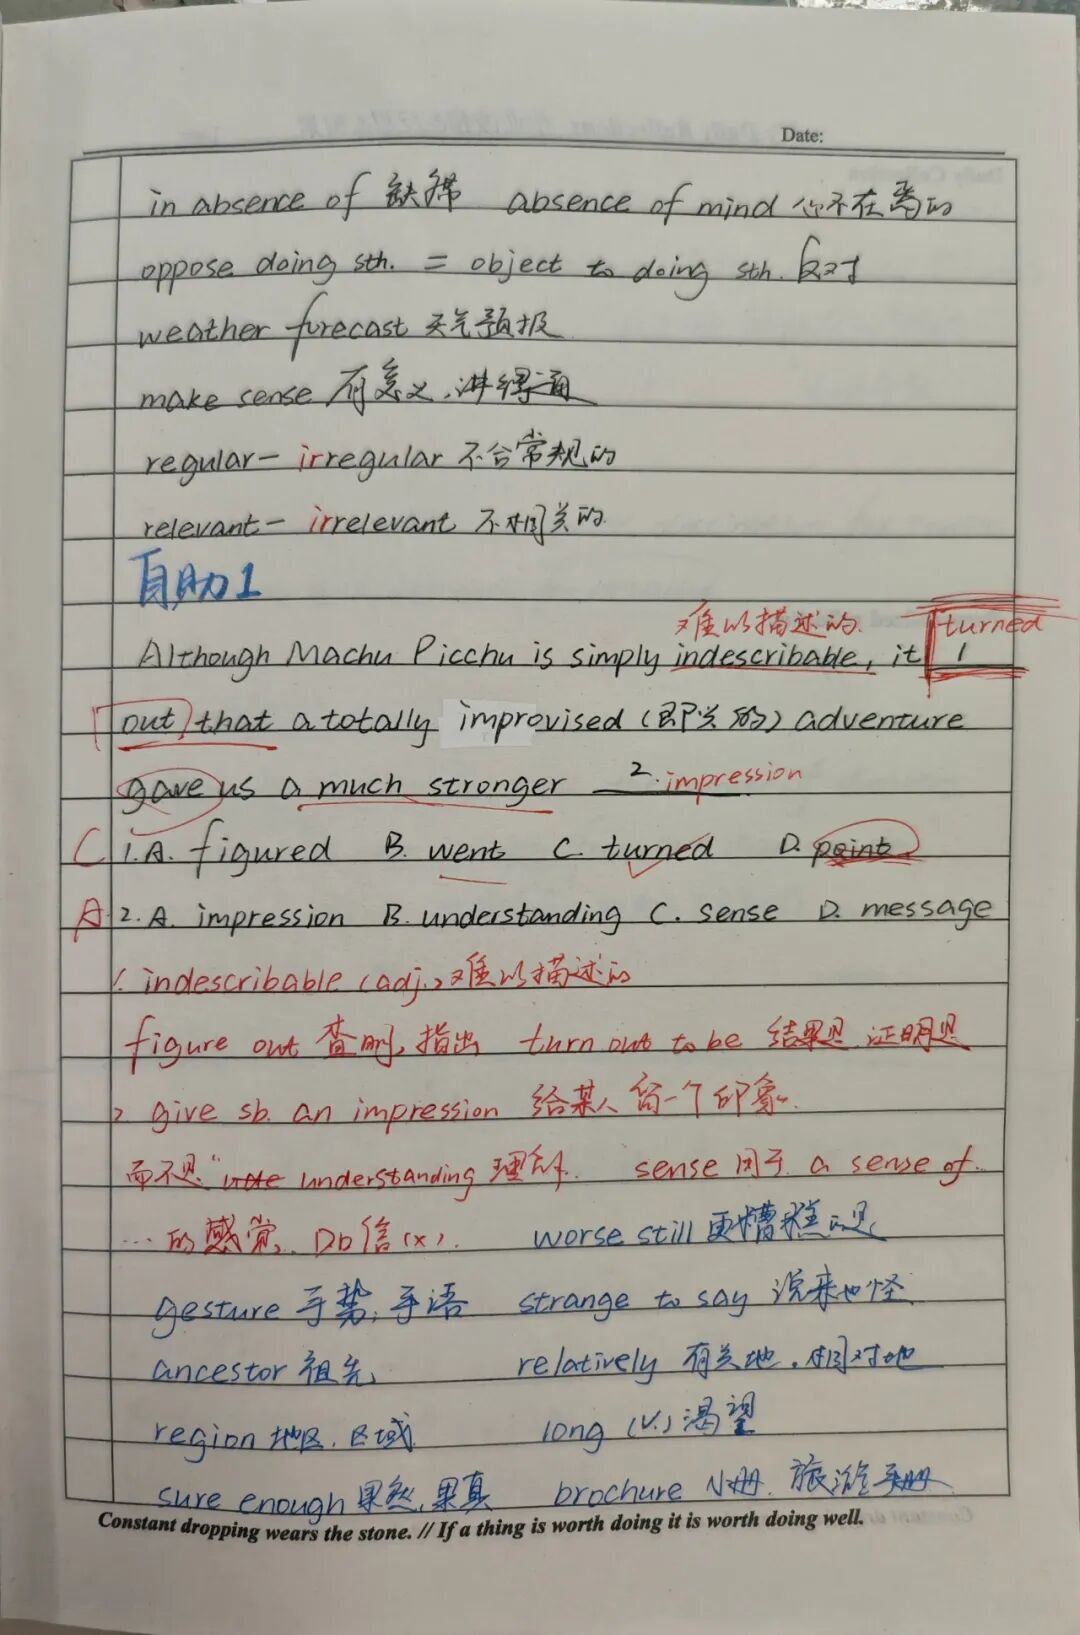 Date:
in absence of 缺席 absence of mind 心不在焉的
oppose doing sth. = object to doing sth. 反对
weather forecast 天气预报
make sense 有意义,讲得通
regular- irregular 不合常规的
relevant- irrelevant 不相关的
自助1
难以描述的. turned
Although Machu Picchu is simply indescribable, it 1
out that a totally improvised (即兴的) adventure
gave us a much stronger 2. impression
C 1.A. figured B. went C. turned D. point
A 2.A. impression B. understanding C. sense D. message
1. indescribable (adj.) 难以描述的
figure out 查明,指出 turn out to be 结果是,证明是
2 give sb. an impression 给某人留一个印象.
而不是" understanding 理解. sense 用于 a sense of
...的感觉. D 信(x). worse still 更糟糕的是
gesture 手势,手语 strange to say 说来也怪
ancestor 祖先 relatively 有关地,相对地
region 地区,区域 long (v.) 渴望
sure enough 果然,果真 brochure 小册,旅游手册
Constant dropping wears the stone. // If a thing is worth doing it is worth doing well.